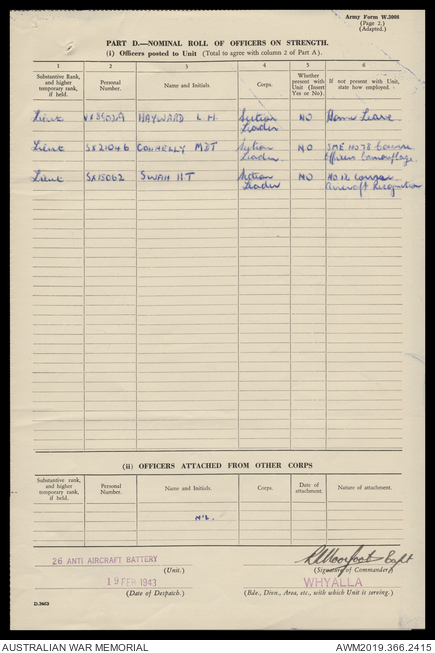 Army Form W.3008
(Page 2.)
(Adapted.)
PART D.—NOMINAL ROLL OF OFFICERS ON STRENGTH.
(i) Officers posted to Unit (Total to agree with column 2 of Part A).
1 2 3 4 5 6
Substantive Rank, and higher temporary rank, if held. Personal Number. Name and Initials. Corps. Whether present with Unit (Insert Yes or No). If not present with Unit, state how employed.
Lieut HAYWARD L H. Section Leader NO Home Leave
Lieut SX21046 CONNELLY MDT Section Leader NO SME NO78 Course Officers Camouflage.
Lieut SX15062 SWAN HT Section Leader NO NO 12 course Aircraft Recognition
(ii) OFFICERS ATTACHED FROM OTHER CORPS
Substantive rank, and higher temporary rank, if held. Personal Number. Name and Initials. Corps. Date of attachment. Nature of attachment.
NIL.
26 ANTI AIRCRAFT BATTERY
(Unit.)
19 FEB 1943
(Date of Despatch.)
Capt
(Signature of Commander)
WHYALLA
(Bde., Divn., Area, etc., with which Unit is serving.)
AUSTRALIAN WAR MEMORIAL
AWM2019.366.2415